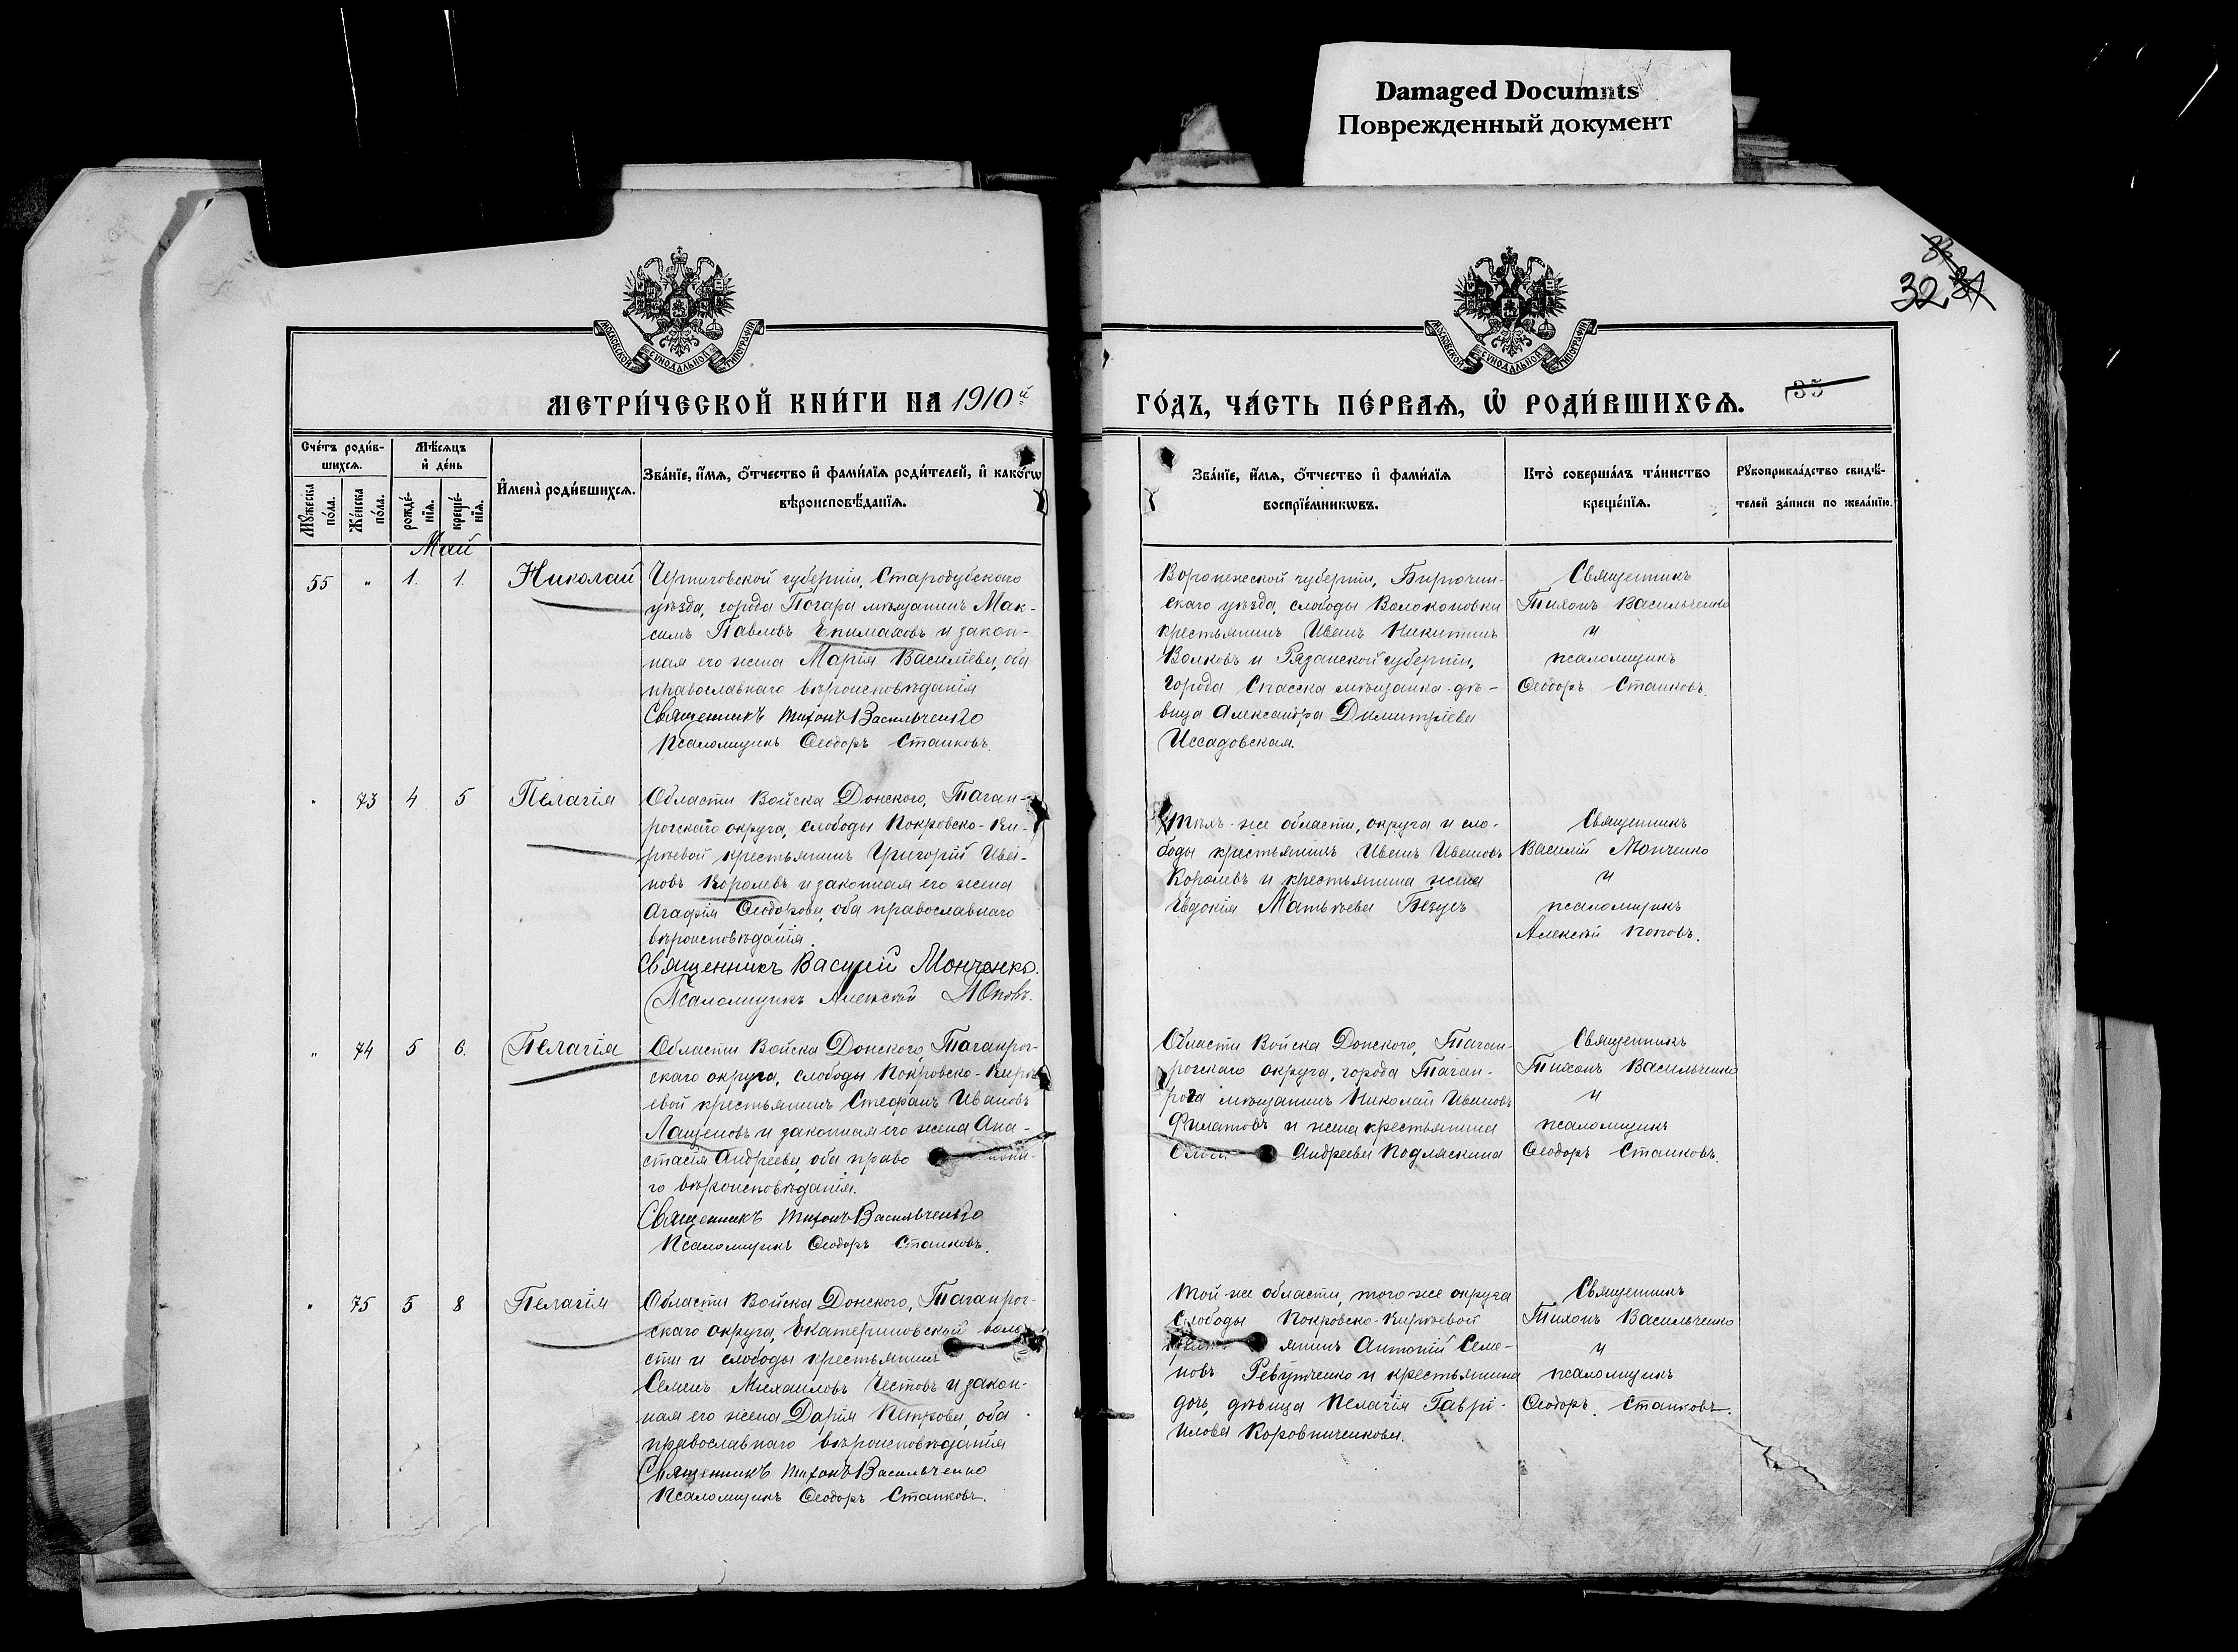 Damaged Documnts
Поврежденный документ
32
МОСКОВСКОЙ СѴНОДАЛЬНОЙ ТИПОГРАФІИ
МОСКОВСКОЙ СѴНОДАЛЬНОЙ ТИПОГРАФІИ
МЕТРИ́ЧЕСКОЙ КНИ́ГИ НА 1910й
ГО́ДЪ, ЧА́СТЬ ПЕ́РВАѦ, Ѡ҆ РОДИ́ВШИХСѦ.
35
Сче́тъ роди́в-
шихсѧ.
Мꙋ́жеска по́ла.
Же́нска по́ла.
Мѣ́сѧцъ
и҆ де́нь
рожде́-
нїѧ.
креще́-
нїѧ.
И҆мена̀ роди́вшихсѧ.
Зва́нїе, и҆́мѧ, ѻ҆́тчество и҆ фами́лїѧ роди́телей, и҆ како́гѡ
вѣроисповѣ́данїѧ.
Зва́нїе, и҆́мѧ, ѻ҆́тчество и҆ фами́лїѧ
воспрїе́мникѡвъ.
Кто̀ соверша́лъ та́инство
креще́нїѧ.
Рꙋкоприкла́дство свидѣ́-
телей за́писи по жела́нїю.
Май
55 „ 1. 1. Николай
Черниговской губерніи, Стародубскаго
уѣзда, города Погара мѣщанинъ Мак-
симъ Павловъ Епимаховъ и закон-
ная его жена Марія Васильева, оба
православнаго вѣроисповѣданія
Священникъ Тихонъ Васильченко
Псаломщикъ Ѳеодоръ Станковъ.
Воронежской губерніи, Бирючин-
скаго уѣзда, слободы Волоконовки
крестьянинъ Иванъ Никитинъ
Волковъ и Рязанской губерніи,
города Спасска мѣщанка дѣ-
вица Александра Димитріева
Иссадовская.
Священникъ
Тихонъ Васильченко
и
псаломщикъ
Ѳеодоръ Станковъ.
„ 73 4 5 Пелагія
Области Войска Донского, Таган-
рогскаго округа, слободы Покровско-Ки-
рѣевой крестьянинъ Григорій Ива-
новъ Королевъ и законная его жена
Агафія Ѳеодорова, оба православнаго
вѣроисповѣданія.
Священникъ Василій Монченко.
Псаломщикъ Алексѣй Поповъ.
тѣхъ-же области, округа и сло-
боды крестьянинъ Иванъ Ивановъ
Королевъ и крестьянина жена
Евдокія Матвѣева Бегусъ
Священникъ
Василій Монченко
и
псаломщикъ
Алексѣй Поповъ.
„ 74 5 6. Пелагія
Области Войска Донского, Таганрог-
скаго округа, слободы Покровско-Кирѣ-
евой крестьянинъ Стефанъ Ивановъ
Лащеновъ и законная его жена Ана-
стасія Андреева, оба право
го вѣроисповѣданія.
Священникъ Тихонъ Васильченко
Псаломщикъ Ѳеодоръ Станковъ.
Области Войска Донского, Таган-
рогскаго округа, города Таган-
рога мѣщанинъ Николай Ивановъ
Филатовъ и жена крестьянина
Андреева Подляскина
Священникъ
Тихонъ Васильченко
и
псаломщикъ
Ѳеодоръ Станковъ.
„ 75 5 8 Пелагія
Области Войска Донского, Таганрог-
скаго округа, Екатериновской воло-
сти и слободы крестьянинъ
Семенъ Михаиловъ Честовъ и закон-
ная его жена Дарія Петрова, оба
православнаго вѣроисповѣданія
Священникъ Тихонъ Васильченко
Псаломщикъ Ѳеодоръ Станковъ.
той-же области, того-же округа
слободы Покровско-Кирѣевой
янинъ Антоній Семе-
новъ Ревутченко и крестьянина
дочь, дѣвица Пелагія Гаври-
илова Коровниченкова.
Священникъ
Тихонъ Васильченко
и
псаломщикъ
Ѳеодоръ Станковъ.